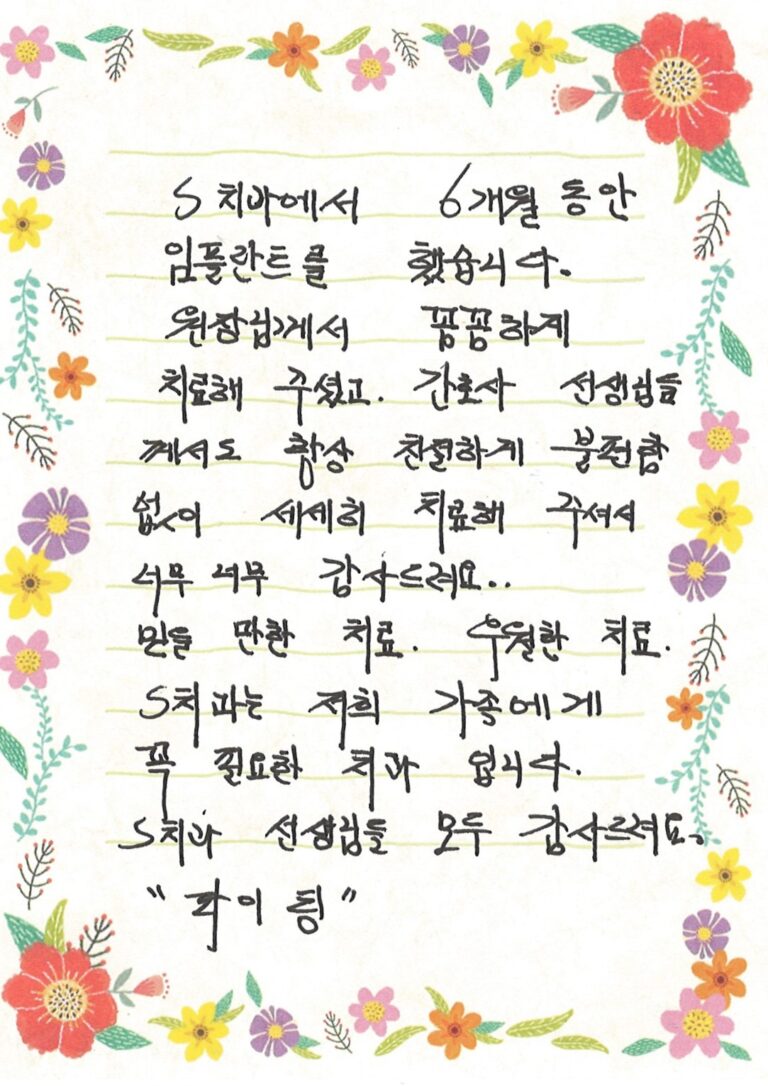 S치과에서 6개월 동안
임플란트를 했습니다.
원장님께서 꼼꼼하게
치료해 주셨고. 간호사 선생님들
께서도 항상 친절하게 불편함
없이 세세히 치료해 주셔서
너무 너무 감사드려요..
믿을 만한 치료. 우월한 치료.
S치과는 저희 가족에게
꼭 필요한 치과 입니다.
S치과 선생님들 모두 감사드려요.
"화이팅"